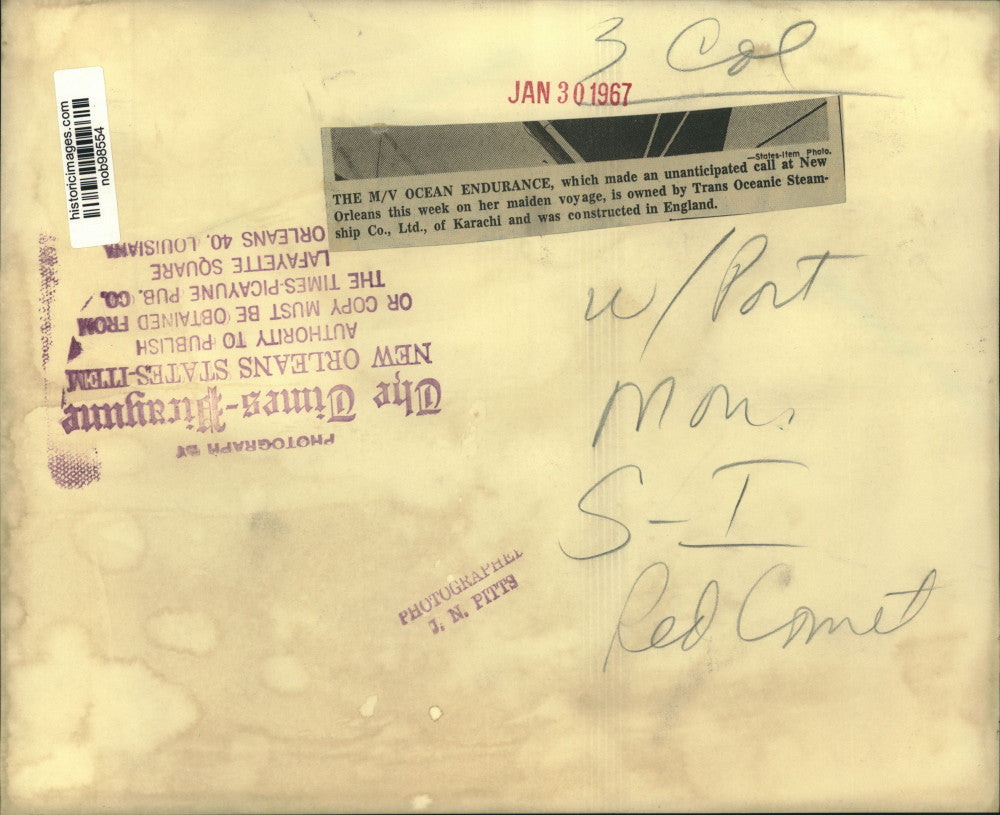 3 Col
JAN 30 1967
historicimages.com
nob98554
—States-Item Photo.
THE M/V OCEAN ENDURANCE, which made an unanticipated call at New
Orleans this week on her maiden voyage, is owned by Trans Oceanic Steam-
ship Co., Ltd., of Karachi and was constructed in England.
w/ Port
Mon.
S-I
Red Comet
PHOTOGRAPH BY
The Times-Picayune
NEW ORLEANS STATES-ITEM
AUTHORITY TO PUBLISH
OR COPY MUST BE OBTAINED FROM
THE TIMES-PICAYUNE PUB. CO.
LAFAYETTE SQUARE
ORLEANS 40, LOUISIANA
PHOTOGRAPHER
J. N. PITTS